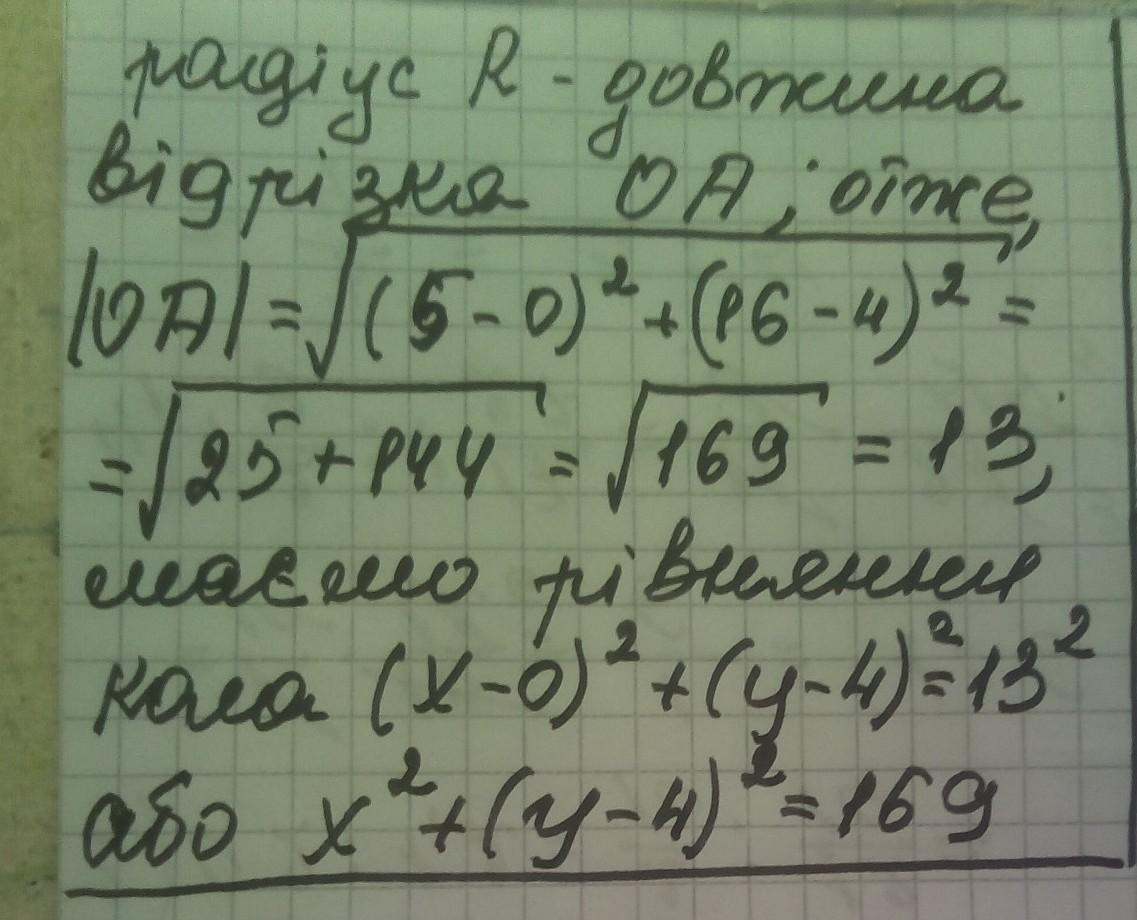 радіус R - довжина
відрізка OA; отже,
|OA| = √(5-0)² + (16-4)² =
= √25+144 = √169 = 13,
маємо рівняння
кола (x-0)² + (y-4)² = 13²
або x² + (y-4)² = 169